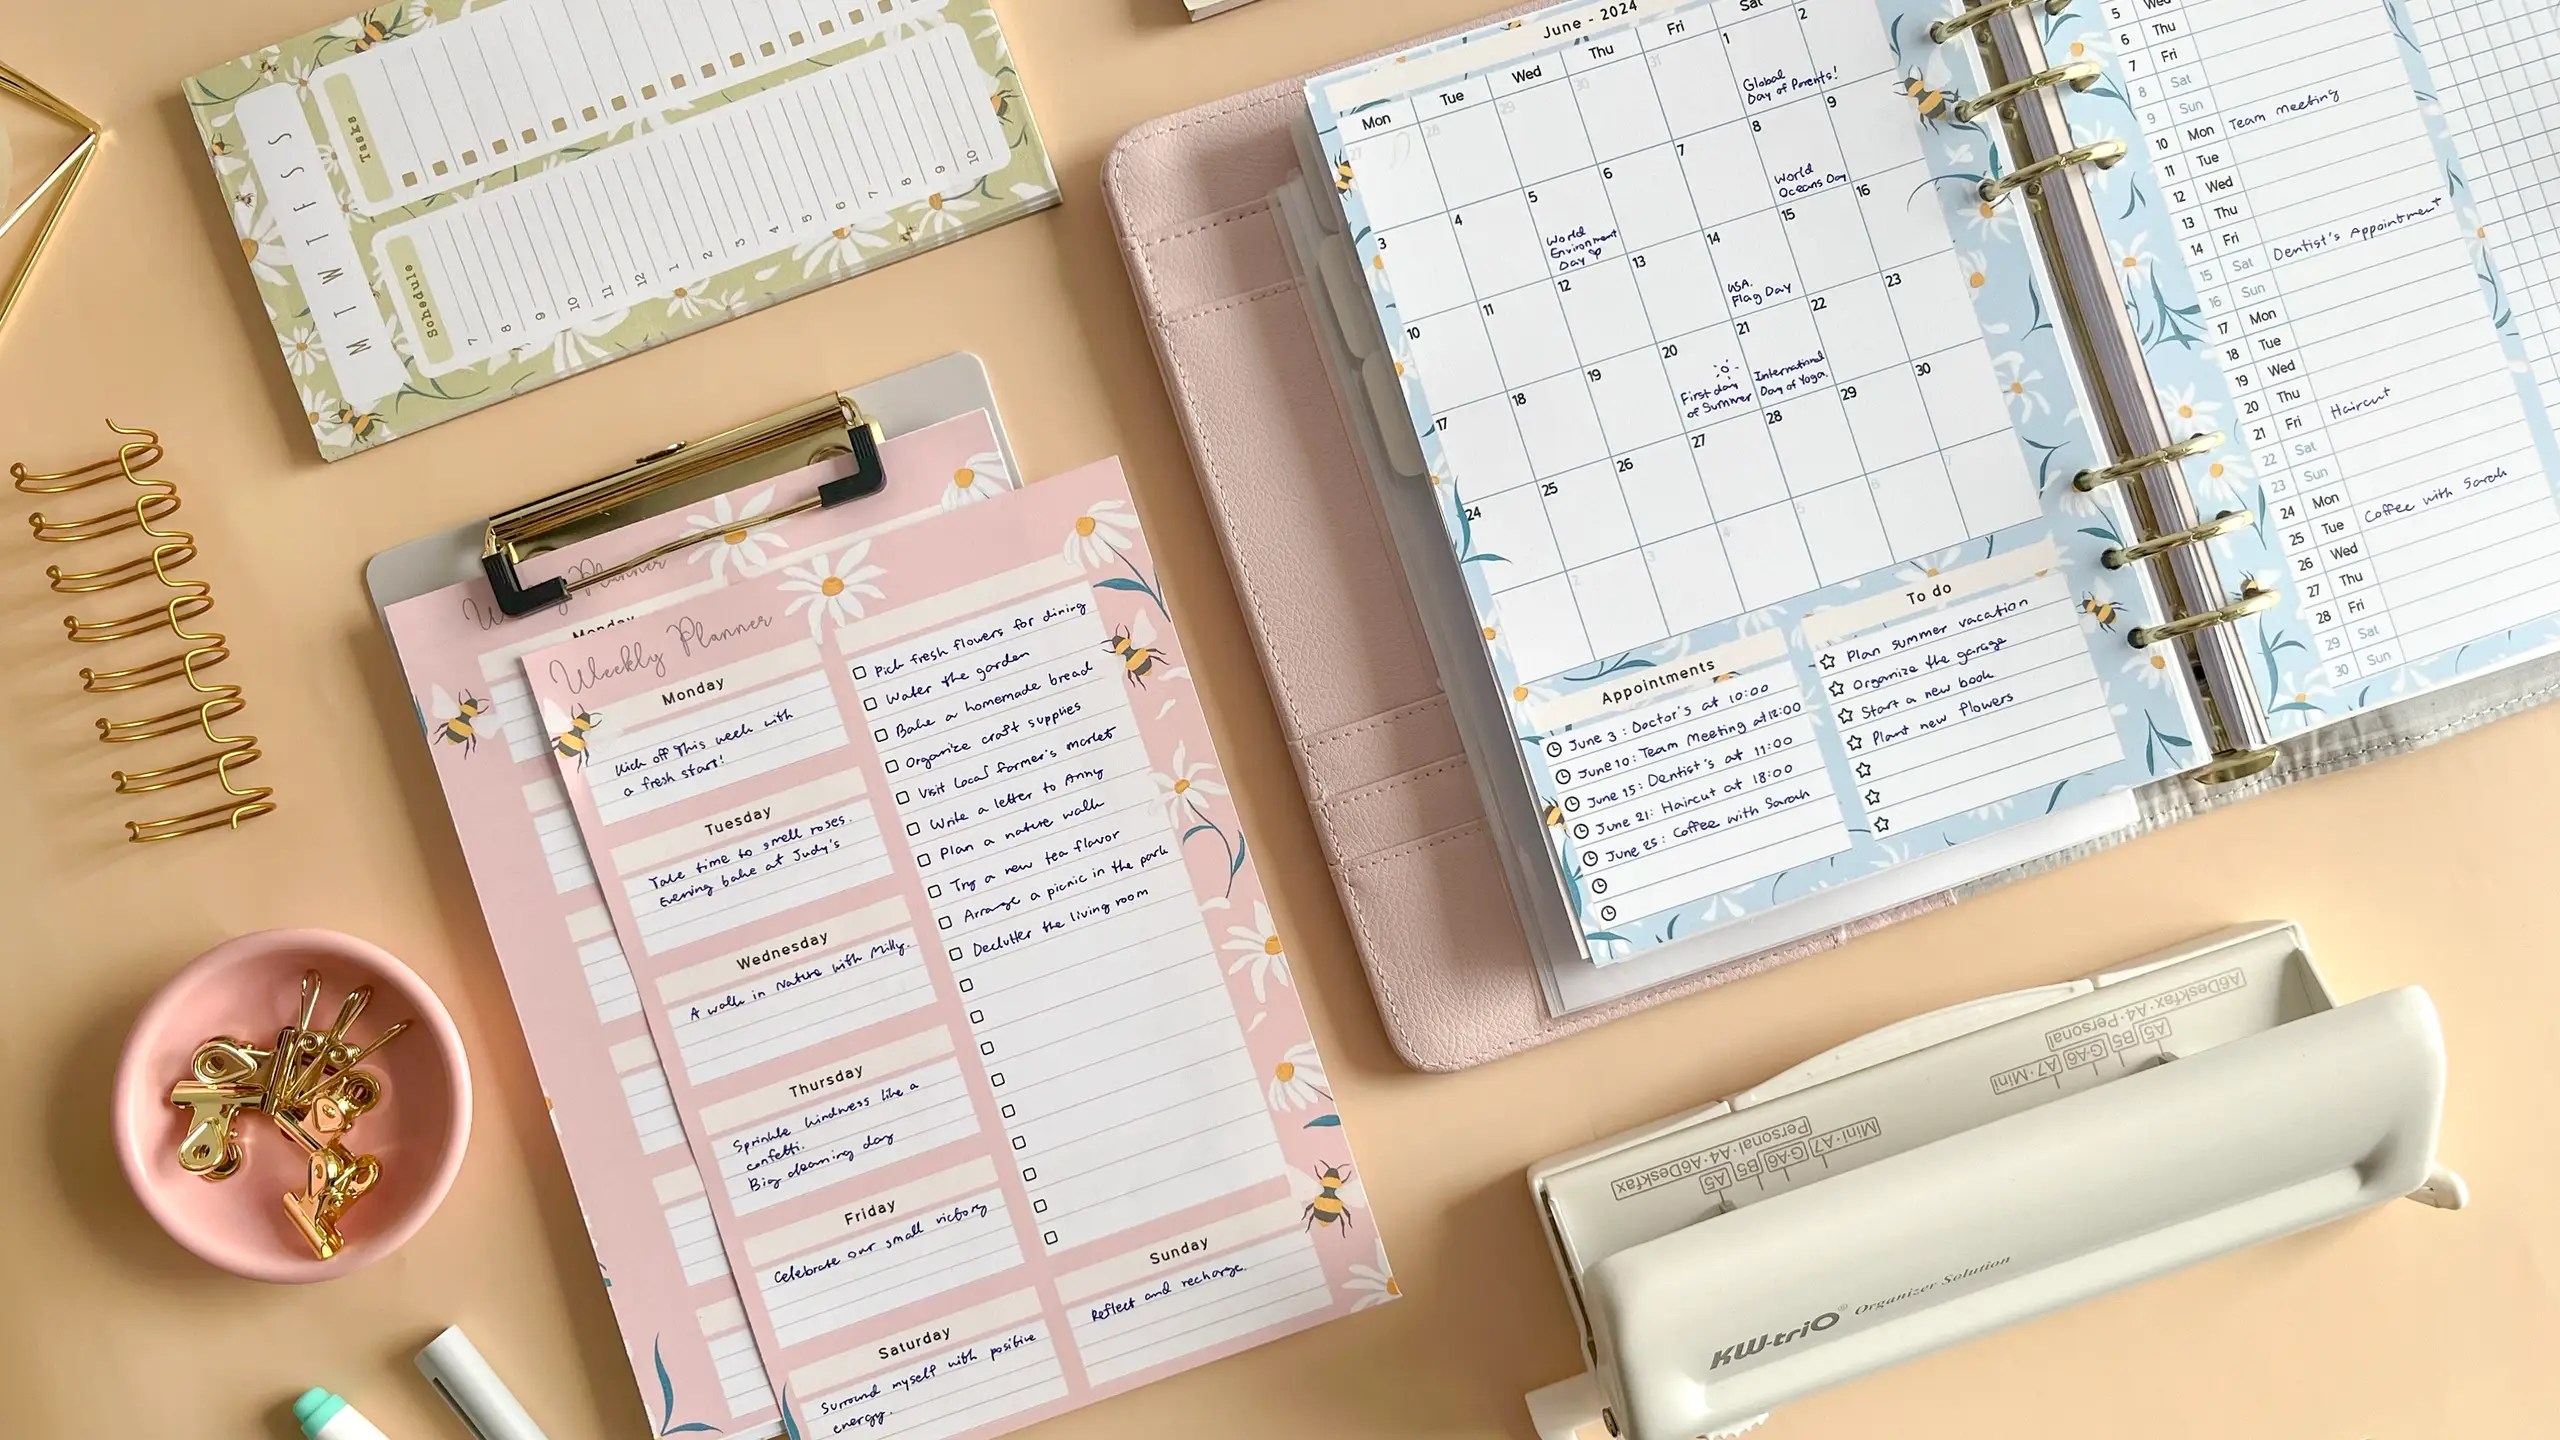 M T W T F S S
Tasks
Schedule
7
8
9
10
11
12
1
2
3
4
5
6
7
8
9
10
Weekly Planner
Monday
Weekly Planner
Monday
Kick off this week with
a fresh start!
Tuesday
Take time to smell roses.
Evening bake at Judy's
Wednesday
A walk in Nature with Milly.
Thursday
Sprinkle kindness like a
confetti.
Big cleaning day
Friday
Celebrate our small victory
Saturday
Surround myself with positive
energy.
Pick fresh flowers for dining
Water the garden
Bake a homemade bread
Organize craft supplies
Visit local farmer's market
Write a letter to Anny
Plan a nature walk
Try a new tea flavor
Arrange a picnic in the park
Declutter the living room
Sunday
Reflect and recharge.
June - 2024
Mon Tue Wed Thu Fri Sat
27 28 29 30 31 1 2
Global
Day of Parents!
3 4 5 6 7 8 9
World
Environment
Day
World
Oceans Day
10 11 12 13 14 15 16
USA.
Flag Day
17 18 19 20 21 22 23
First day
of Summer
International
Day of Yoga.
24 25 26 27 28 29 30
2 3 4 5 6 7
Appointments
June 3 : Doctor's at 10:00
June 10: Team Meeting at 12:00
June 15: Dentist's at 11:00
June 21: Haircut at 18:00
June 25: Coffee with Sarah
To do
Plan summer vacation
Organize the garage
Start a new book
Plant new flowers
5 Wed
6 Thu
7 Fri
8 Sat
9 Sun
10 Mon Team meeting
11 Tue
12 Wed
13 Thu
14 Fri
15 Sat Dentist's Appointment
16 Sun
17 Mon
18 Tue
19 Wed
20 Thu
21 Fri Haircut
22 Sat
23 Sun
24 Mon
25 Tue Coffee with Sarah
26 Wed
27 Thu
28 Fri
29 Sat
30 Sun
A6Deskfax·A4·Personal
A5
B5
G·A6
A7·Mini
Mini·A7
G·A6
B5
A5
A6Deskfax·A4·Personal
KW-triO® Organizer Solution